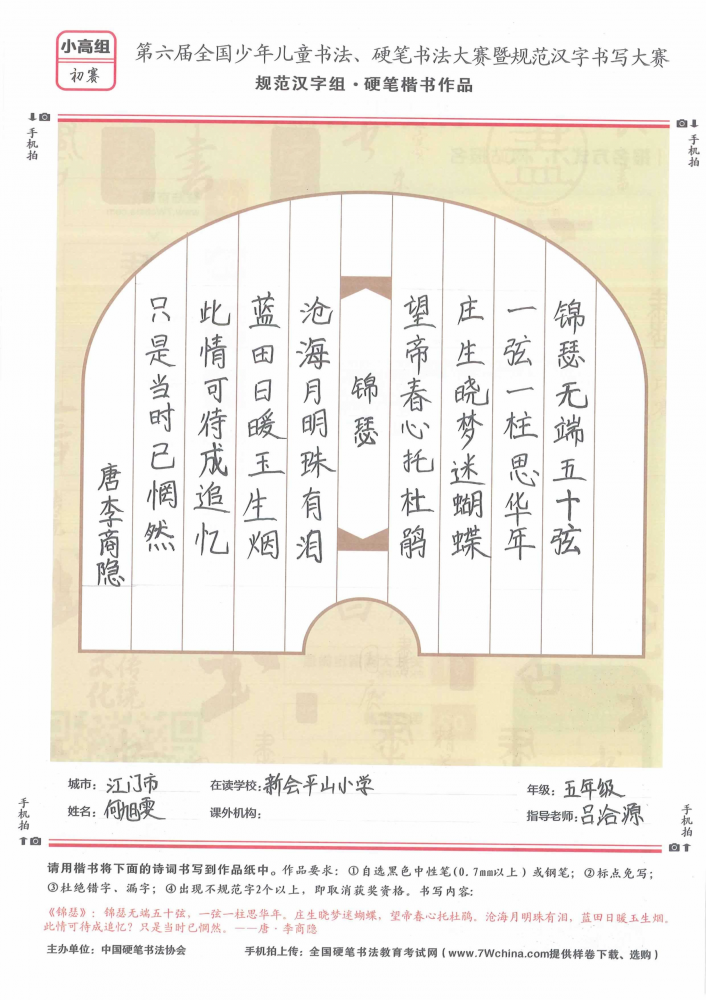 小高组
初赛
第六届全国少年儿童书法、硬笔书法大赛暨规范汉字书写大赛
规范汉字组·硬笔楷书作品
手机拍
手机拍
锦瑟无端五十弦
一弦一柱思华年
庄生晓梦迷蝴蝶
望帝春心托杜鹃
锦瑟
沧海月明珠有泪
蓝田日暖玉生烟
此情可待成追忆
只是当时已惘然
唐李商隐
城市：江门市
在读学校：新会平山小学
年级：五年级
姓名：何旭雯
课外机构：
指导老师：吕洽源
手机拍
手机拍
请用楷书将下面的诗词书写到作品纸中。作品要求：①自选黑色中性笔(0.7mm以上）或钢笔；②标点免写；
③杜绝错字、漏字；④出现不规范字2个以上，即取消获奖资格。书写内容：
《锦瑟》：锦瑟无端五十弦，一弦一柱思华年。庄生晓梦迷蝴蝶，望帝春心托杜鹃。沧海月明珠有泪，蓝田日暖玉生烟。
此情可待成追忆？只是当时已惘然。——唐·李商隐
主办单位：中国硬笔书法协会
手机拍上传：全国硬笔书法教育考试网（www.7Wchina.com提供样卷下载、选购）